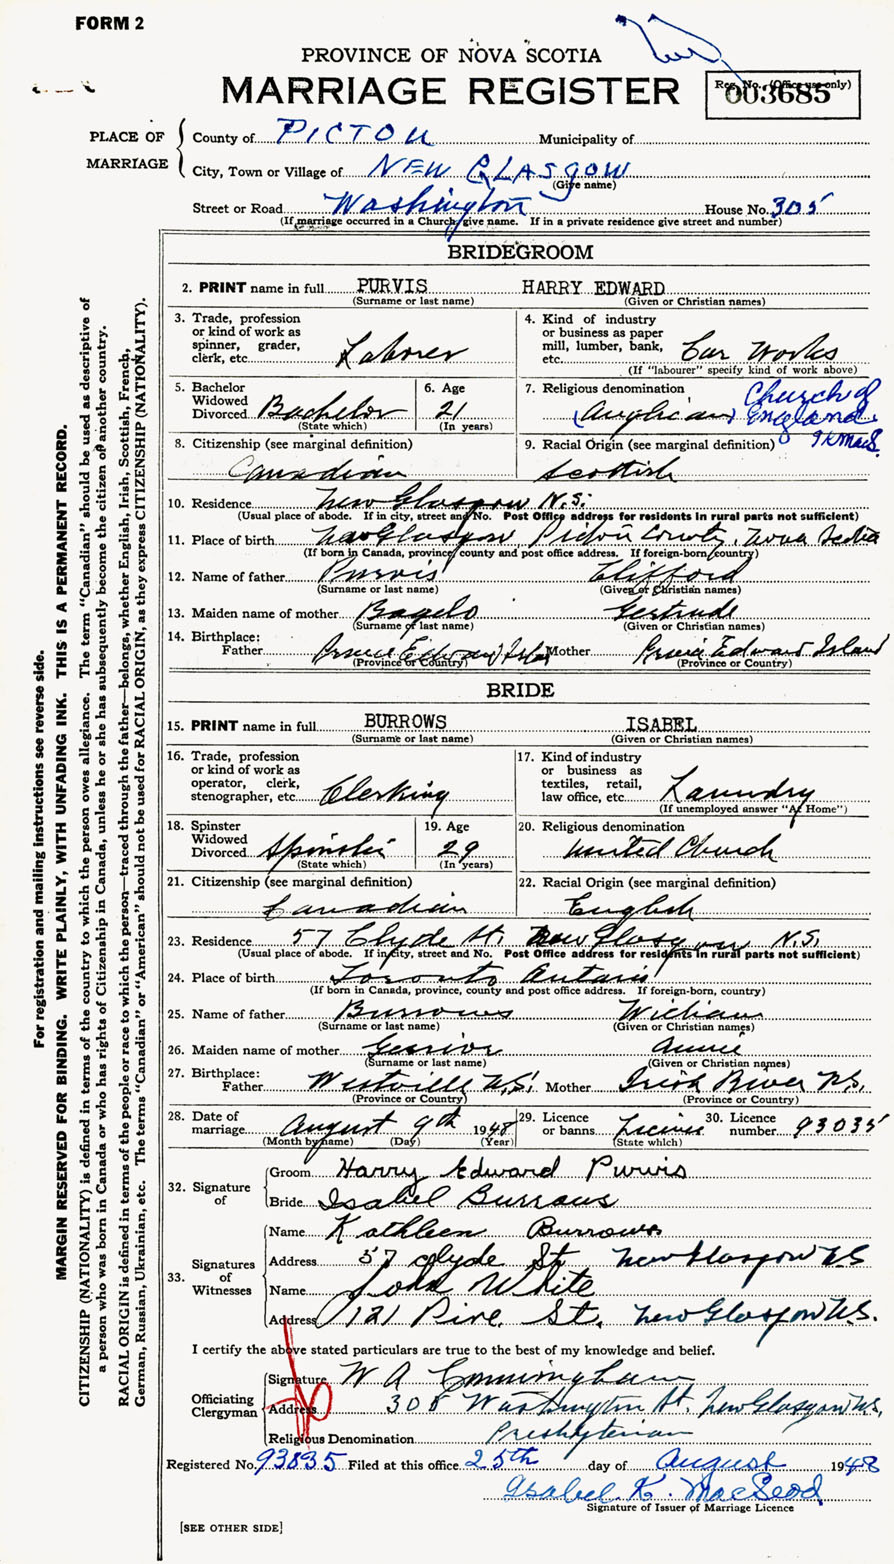 FORM 2
PROVINCE OF NOVA SCOTIA
MARRIAGE REGISTER
Reg. No. (Office use only)
003685
PLACE OF MARRIAGE
County of PICTOU Municipality of
City, Town or Village of NEW GLASGOW
(Give name)
Street or Road Washington House No. 305
(If marriage occurred in a Church give name. If in a private residence give street and number)
BRIDEGROOM
2. PRINT name in full PURVIS HARRY EDWARD
(Surname or last name) (Given or Christian names)
3. Trade, profession
or kind of work as
spinner, grader,
clerk, etc. Laborer
4. Kind of industry
or business as paper
mill, lumber, bank,
etc. Car Works
(If "labourer" specify kind of work above)
5. Bachelor
Widowed
Divorced Bachelor
(State which)
6. Age
21
(In years)
7. Religious denomination Church of
(Anglican) England
IKMacS.
8. Citizenship (see marginal definition)
Canadian
9. Racial Origin (see marginal definition)
Scottish
10. Residence New Glasgow N.S.
(Usual place of abode. If in city, street and No. Post Office address for residents in rural parts not sufficient)
11. Place of birth New Glasgow Pictou County, Nova Scotia
(If born in Canada, province, county and post office address. If foreign-born, country)
12. Name of father Purvis Clifford
(Surname or last name) (Given or Christian names)
13. Maiden name of mother Gertrude
(Surname or last name) (Given or Christian names)
14. Birthplace:
Father Prince Edward Isld Mother Prince Edward Island
(Province or Country) (Province or Country)
BRIDE
15. PRINT name in full BURROWS ISABEL
(Surname or last name) (Given or Christian names)
16. Trade, profession
or kind of work as
operator, clerk,
stenographer, etc. Clerking
17. Kind of industry
or business as
textiles, retail,
law office, etc. Laundry
(If unemployed answer "At Home")
18. Spinster
Widowed
Divorced Spinster
(State which)
19. Age
29
(In years)
20. Religious denomination
United Church
21. Citizenship (see marginal definition)
Canadian
22. Racial Origin (see marginal definition)
English
23. Residence 57 Clyde St. New Glasgow N.S.
(Usual place of abode. If in city, street and No. Post Office address for residents in rural parts not sufficient)
24. Place of birth Toronto Ontario
(If born in Canada, province, county and post office address. If foreign-born, country)
25. Name of father Burrows William
(Surname or last name) (Given or Christian names)
26. Maiden name of mother Gerrior Annie
(Surname or last name) (Given or Christian names)
27. Birthplace:
Father Westville N.S. Mother Irish River N.S.
(Province or Country) (Province or Country)
28. Date of
marriage August 9th 1948
(Month by name) (Day) (Year)
29. Licence
or banns License
(State which)
30. Licence
number 93035
32. Signature of
Groom Harry Edward Purvis
Bride Isabel Burrows
33. Signatures of Witnesses
Name Kathleen Burrows
Address 57 Clyde St. New Glasgow N.S
Name John White
Address 121 Pine St. New Glasgow N.S.
I certify the above stated particulars are true to the best of my knowledge and belief.
Officiating Clergyman
Signature W A Cunningham
Address 305 Washington St. New Glasgow N.S.
Religious Denomination Presbyterian
Registered No. 93835 Filed at this office 25th day of August 1948
Isabel K. MacLeod
Signature of Issuer of Marriage Licence
[SEE OTHER SIDE]
For registration and mailing instructions see reverse side.
MARGIN RESERVED FOR BINDING. WRITE PLAINLY, WITH UNFADING INK. THIS IS A PERMANENT RECORD.
CITIZENSHIP (NATIONALITY) is defined in terms of the country to which the person owes allegiance. The term "Canadian" should be used as descriptive of
a person who was born in Canada or who has rights of Citizenship in Canada, unless he or she has subsequently become the citizen of another country.
RACIAL ORIGIN is defined in terms of the people or race to which the person—traced through the father—belongs, whether English, Irish, Scottish, French,
German, Russian, Ukrainian, etc. The terms "Canadian" or "American" should not be used for RACIAL ORIGIN, as they express CITIZENSHIP (NATIONALITY).